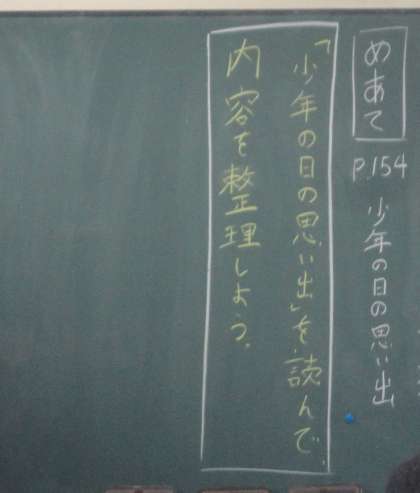 めあて
P.154 少年の日の思い出
「少年の日の思い出」を読んで、
内容を整理しよう。